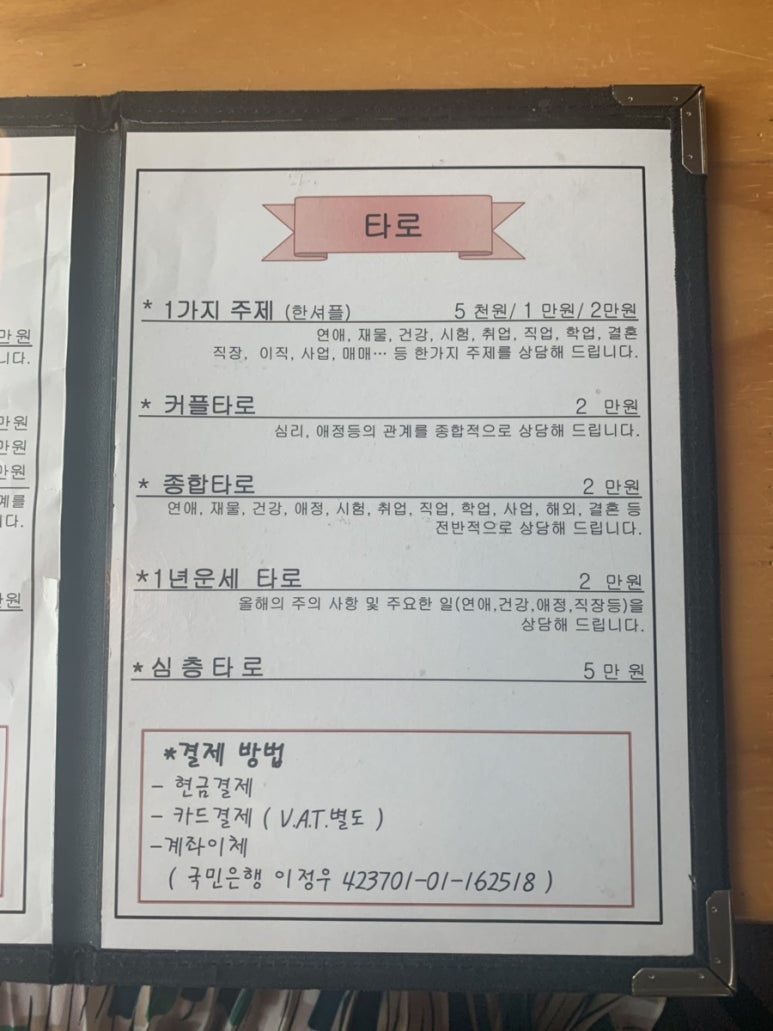 만원
니다.
만원
만원
만원
계를
니다.
타로
* 1가지 주제 (한셔플) 5 천원/ 1 만원/ 2만원
연애, 재물, 건강, 시험, 취업, 직업, 학업, 결혼
직장, 이직, 사업, 매매… 등 한가지 주제를 상담해 드립니다.
* 커플타로 2 만원
심리, 애정등의 관계를 종합적으로 상담해 드립니다.
* 종합타로 2 만원
연애, 재물, 건강, 애정, 시험, 취업, 직업, 학업, 사업, 해외, 결혼 등
전반적으로 상담해 드립니다.
*1년운세 타로 2 만원
올해의 주의 사항 및 주요한 일(연애,건강,애정,직장등)을
상담해 드립니다.
* 심 층 타 로 5 만 원
*결제 방법
- 현금결제
- 카드결제 ( V.A.T.별도 )
-계좌이체
( 국민은행 이정우 423701-01-162518 )